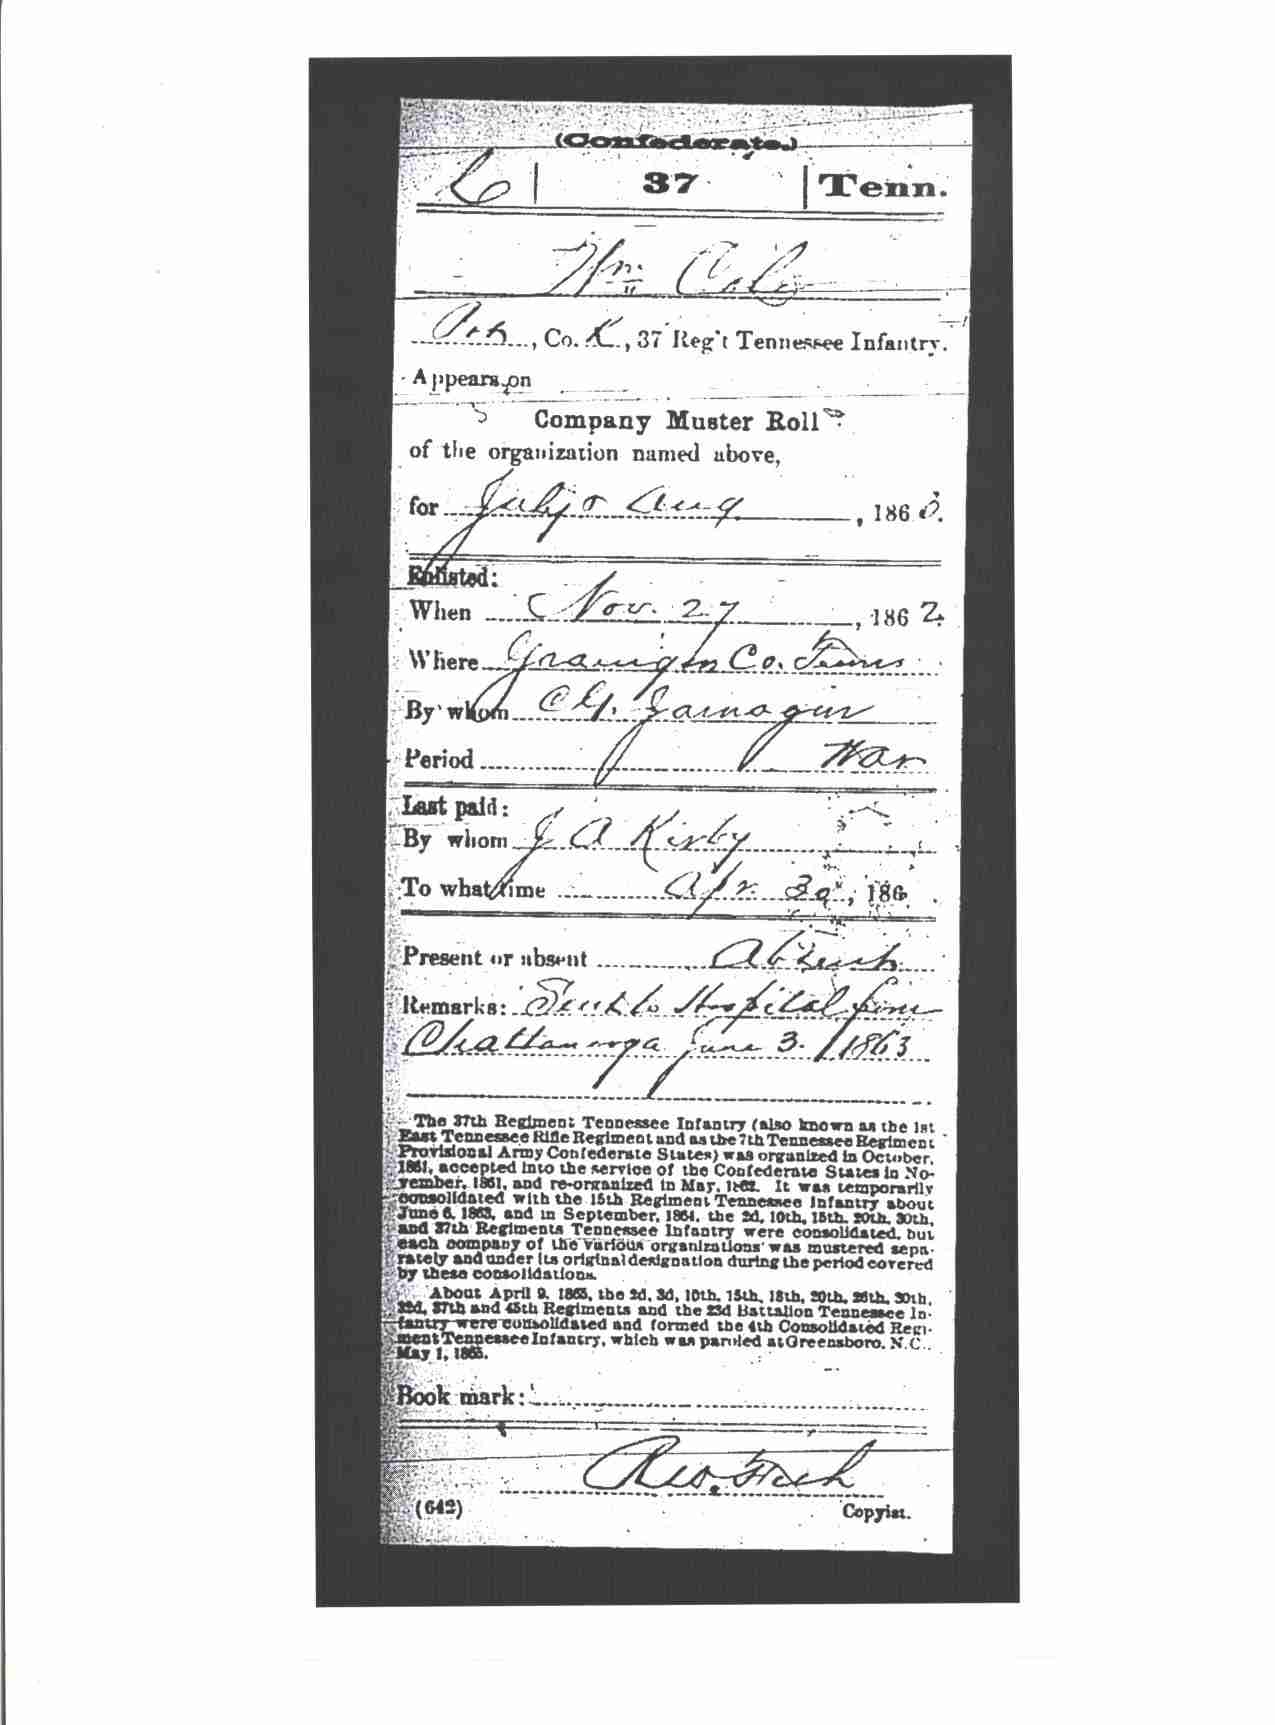 (Confederate.)
C | 37 | Tenn.
Wm Cole
Pvt, Co. K, 37 Reg't Tennessee Infantry.
Appears on
Company Muster Roll
of the organization named above,
for July & Aug, 1863.
Enlisted:
When Nov. 27, 1862.
Where Co. Tenn
By whom C G. Jarnagin
Period War
Last paid:
By whom J A Kirby
To what time Apr. 30, 186 .
Present or absent Absent
Remarks: Sent to Hospital from
Chattanooga June 3. 1863
The 37th Regiment Tennessee Infantry (also known as the 1st
East Tennessee Rifle Regiment and as the 7th Tennessee Regiment
Provisional Army Confederate States) was organized in October,
1861, accepted into the service of the Confederate States in No-
vember, 1861, and re-organized in May, 1862. It was temporarily
consolidated with the 15th Regiment Tennessee Infantry about
June 6, 1863, and in September, 1864, the 2d, 10th, 15th, 20th, 30th,
and 37th Regiments Tennessee Infantry were consolidated, but
each company of the various organizations was mustered sepa-
rately and under its original designation during the period covered
by these consolidations.
About April 9, 1865, the 2d, 3d, 10th, 15th, 18th, 20th, 26th, 30th,
32d, 37th and 45th Regiments and the 23d Battalion Tennessee In-
fantry were consolidated and formed the 4th Consolidated Regi-
ment Tennessee Infantry, which was paroled at Greensboro, N.C.,
May 1, 1865.
Book mark:
(642)
Copyist.